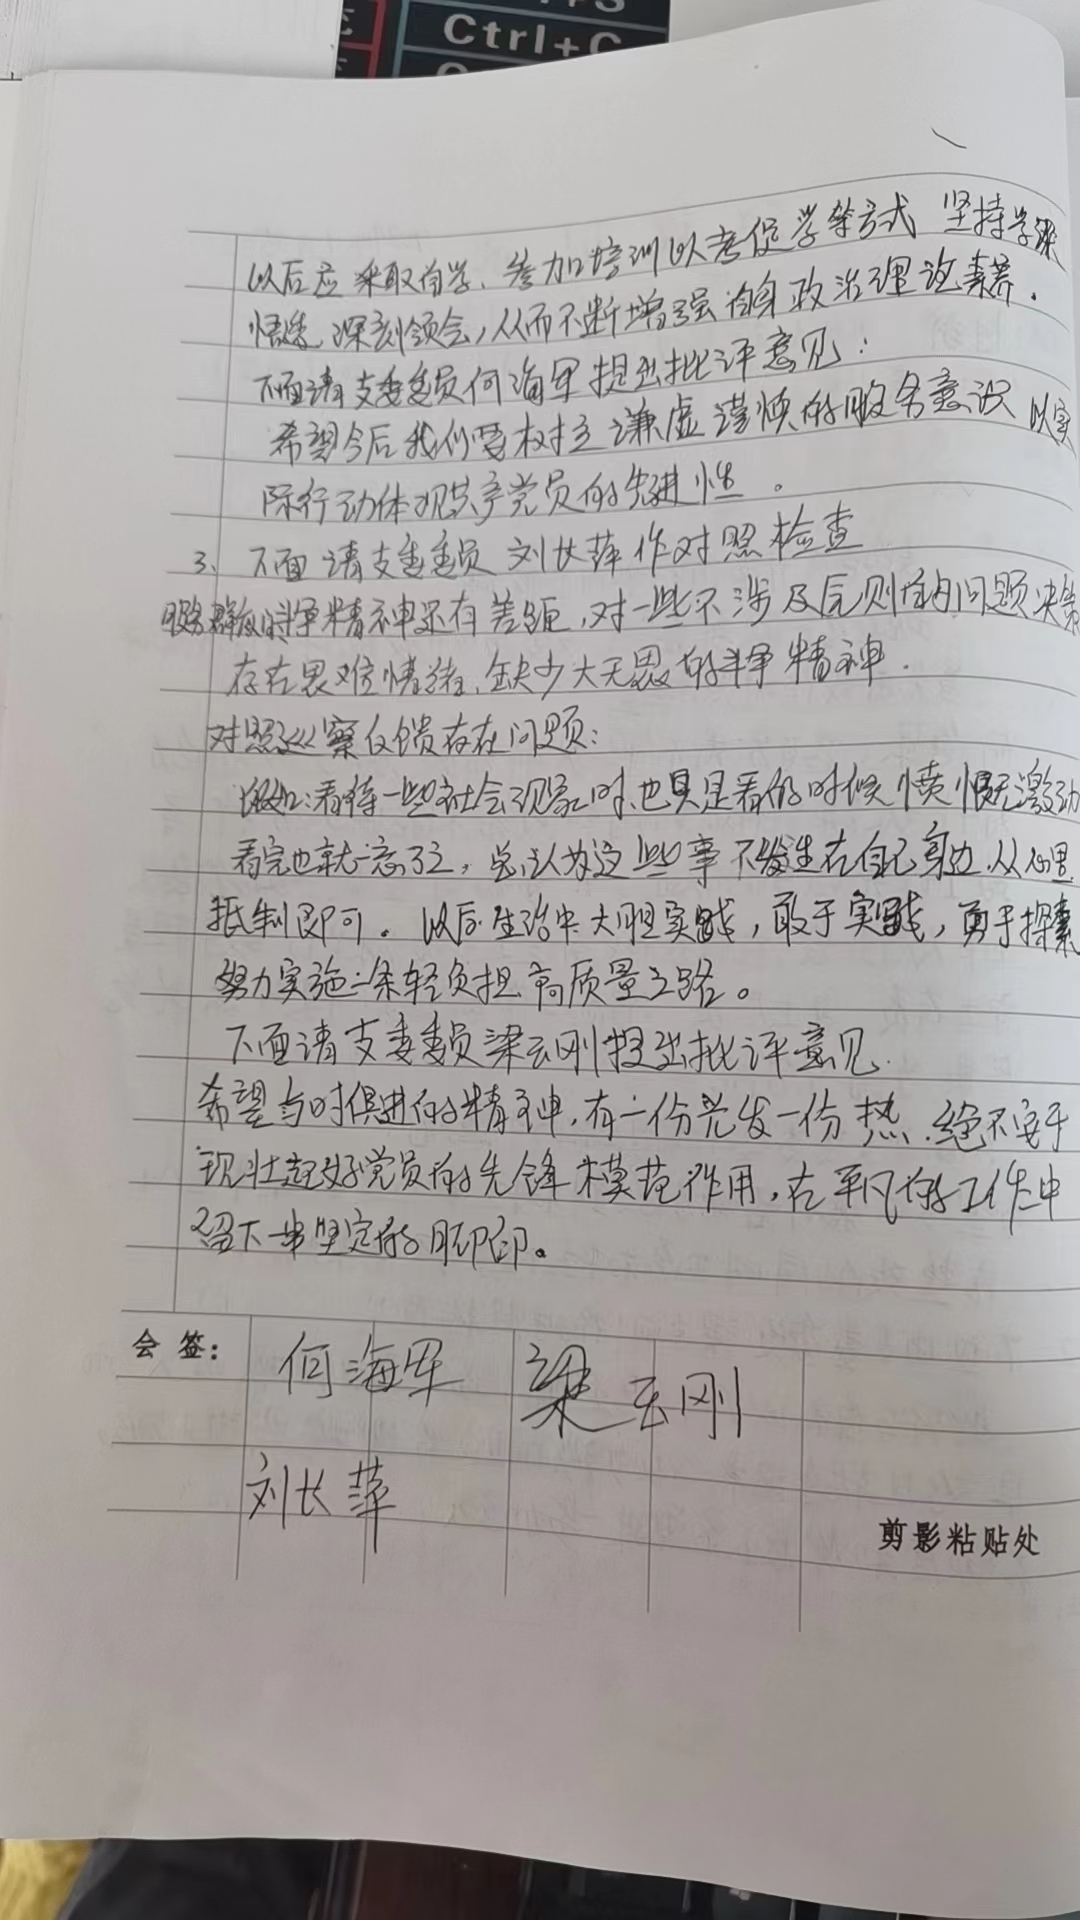 Ctrl+C
以后应采取自学、参加培训以考促学等方式 坚持学深
悟透,深刻领会,从而不断增强自身政治理论素养.
下面请支委委员何海军提出批评意见:
希望今后我们要树立谦虚谨慎的服务意识 以实
际行动体现共产党员的先进性。
3、下面请支委委员 刘长萍作对照检查
服务群众的斗争精神还有差距,对一些不涉及原则性的问题决策
存在畏难情绪,缺少大无畏的斗争精神.
对照巡察反馈存在问题:
比如:看待一些社会现象时,也只是看的时候愤恨激动
看完也就忘了,总认为这些事不发生在自己身边,从心里
抵制即可。以后生活中大胆实践,敢于实践,勇于探索
努力实施一条轻负担高质量之路。
下面请支委委员梁云刚提出批评意见.
希望与时俱进的精神,有一份光发一份热,绝不安于
现壮起好党员的先锋模范作用,在平凡的工作中
留下一串坚定的脚印。
会签: 何海军 梁云刚
刘长萍
剪影粘贴处